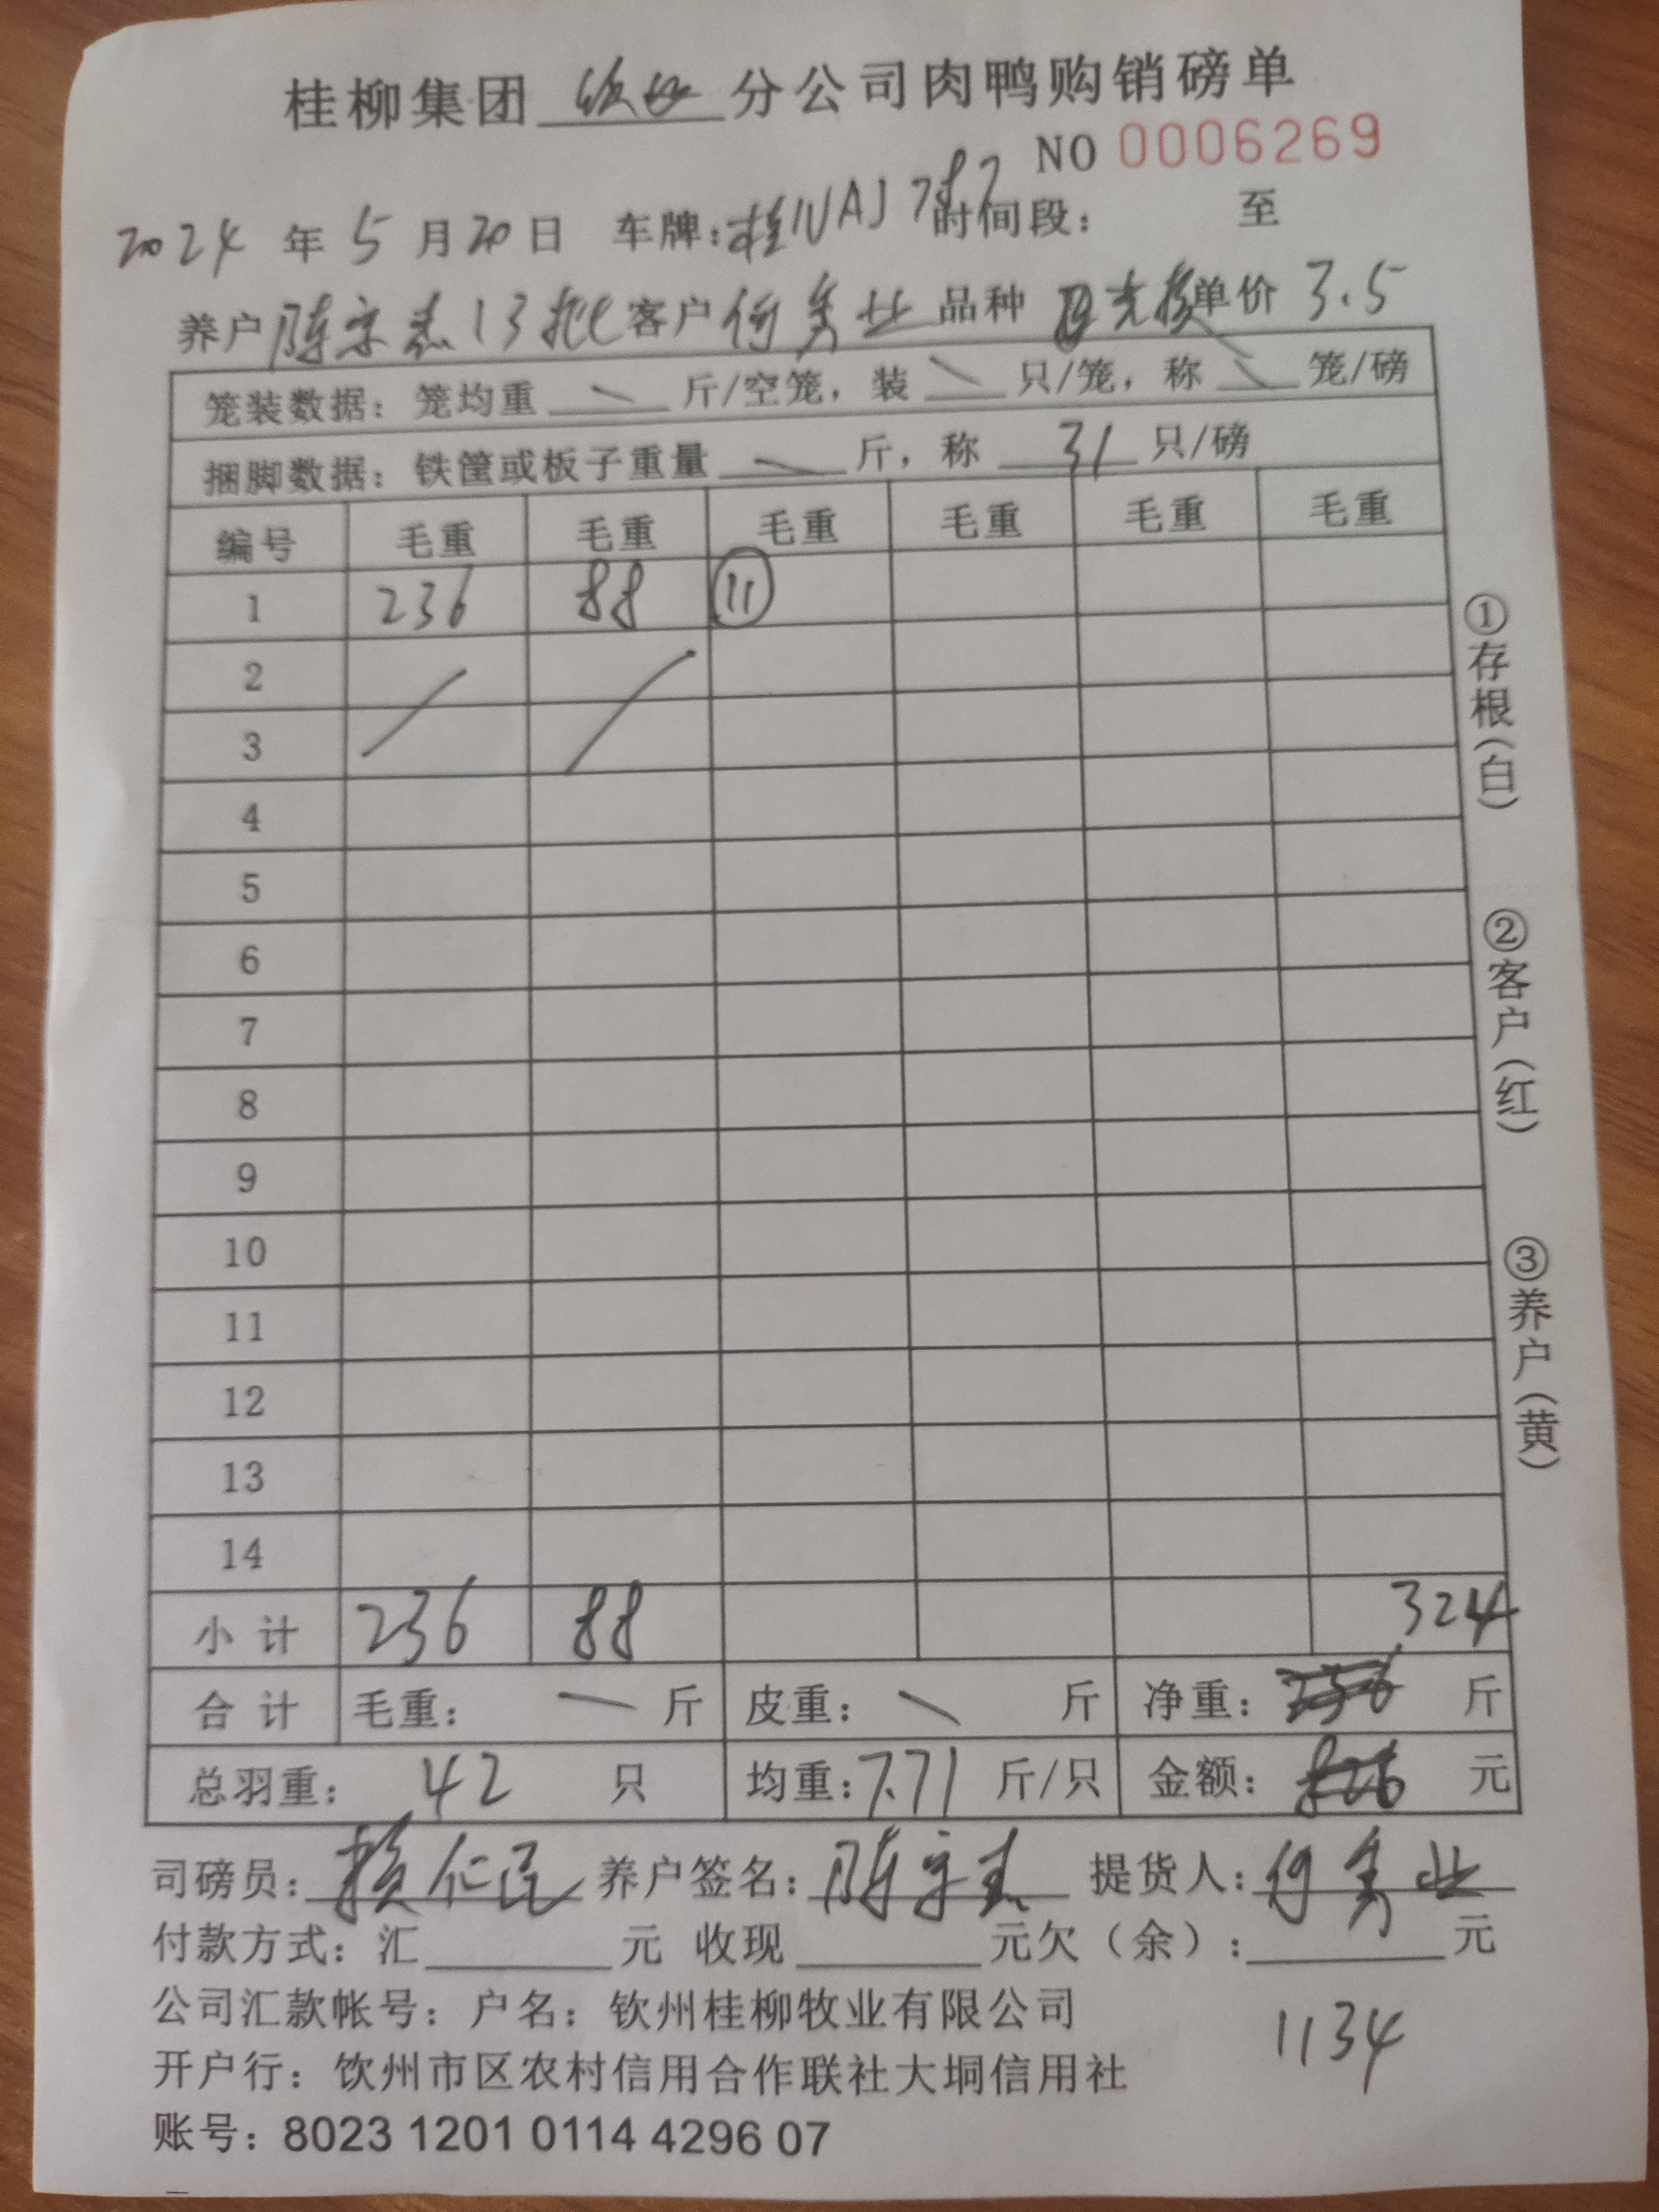 桂柳集团 钦州 分公司肉鸭购销磅单
NO 0006269
2024 年 5 月 20 日 车牌: 桂NAJ 时间段: 至
养户 陈宗 13批 客户 何 业 品种 单价 3.5
笼装数据: 笼均重 斤/空笼, 装 只/笼, 称 笼/磅
捆脚数据: 铁筐或板子重量 斤, 称 31 只/磅
编号 毛重 毛重 毛重 毛重 毛重 毛重
1 236 88 ⑪
2
3
4
5
6
7
8
9
10
11
12
13
14
小计 236 88 324
合计 毛重: 斤 皮重: 斤 净重: 斤
总羽重: 42 只 均重: 7.71 斤/只 金额: 元
司磅员: 赖仁民 养户签名: 陈宗 提货人: 何 业
付款方式: 汇 元 收现 元欠（余）: 元
公司汇款帐号: 户名: 钦州桂柳牧业有限公司
1134
开户行: 钦州市区农村信用合作联社大垌信用社
账号: 8023 1201 0114 4296 07
①存根(白)
②客户(红)
③养户(黄)